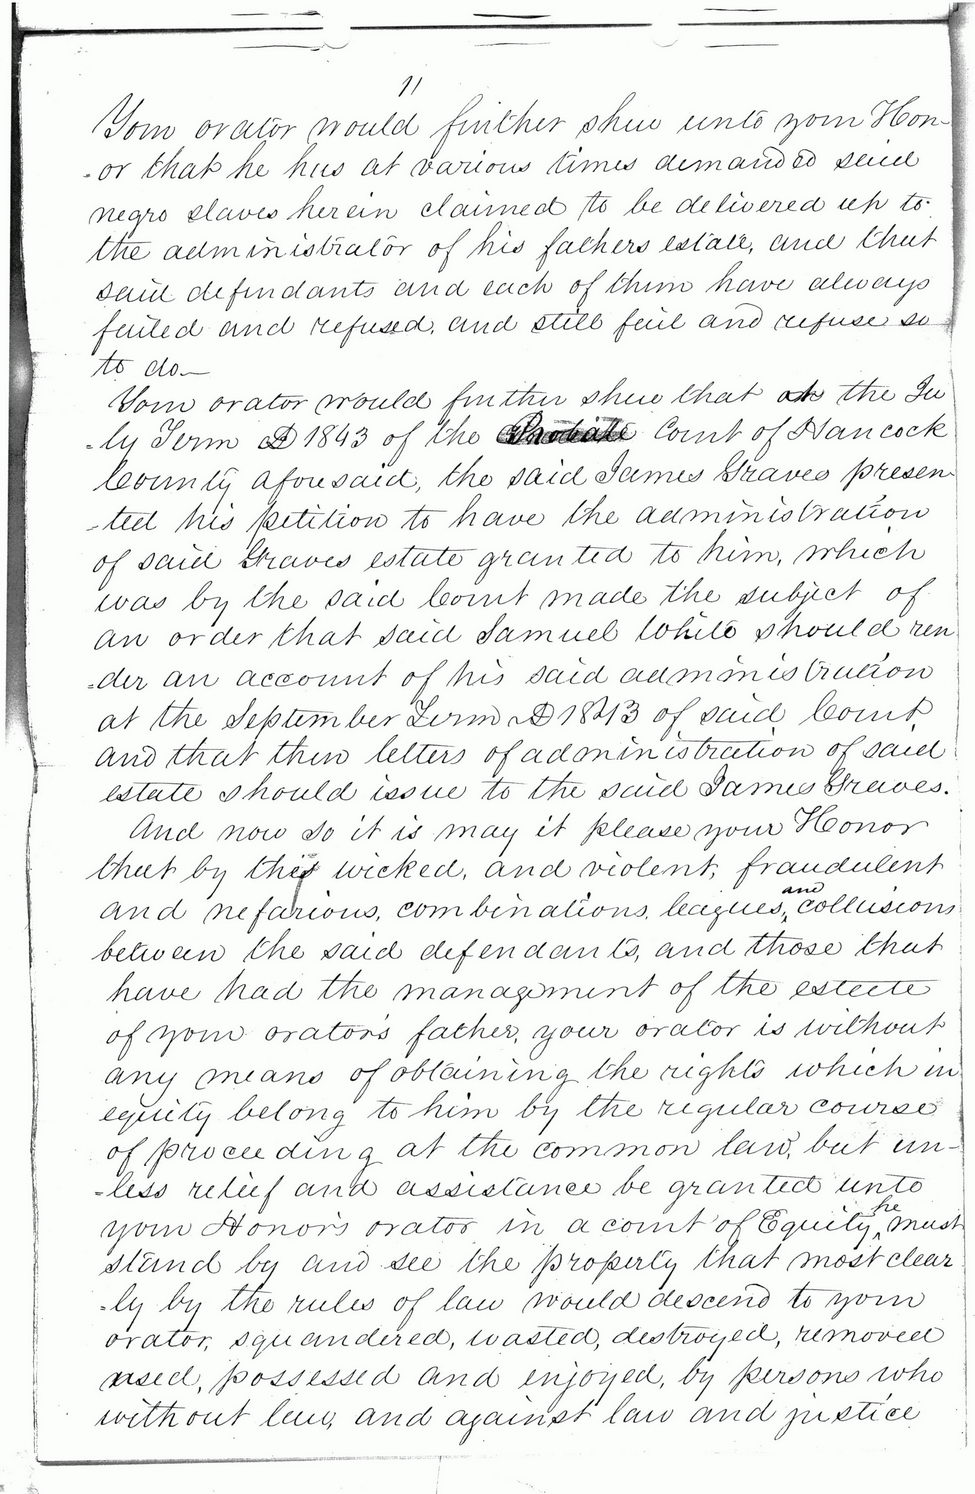 11
Your orator would further shew unto your Hon-
-or that he has at various times demanded said
negro slaves herein claimed to be delivered up to
the administrator of his fathers estate, and that
said defendants and each of them have always
failed and refused, and still fail and refuse so
to do—
Your orator would further shew that at the Ju
-ly Term AD 1843 of the Probate Court of Hancock
County aforesaid, the said James Graves presen
-ted his petition to have the administration
of said Graves estate granted to him, which
was by the said Court made the subject of
an order that said Samuel White should ren
-der an account of his said administration
at the September Term AD 1843 of said Court,
and that then letters of administration of said
estate should issue to the said James Graves.
And now so it is may it please your Honor
that by this wicked, and violent, fraudulent
and nefarious, combinations, leagues, and collusions
between the said defendants, and those that
have had the management of the estate
of your orator's father, your orator is without
any means of obtaining the rights which in
equity belong to him by the regular course
of proceeding at the common law, but un-
-less relief and assistance be granted unto
your Honor's orator in a court of Equity, he must
stand by and see the property that most clear
-ly by the rules of law would descend to your
orator, squandered, wasted, destroyed, removed
used, possessed and enjoyed, by persons who
without law, and against law and justice